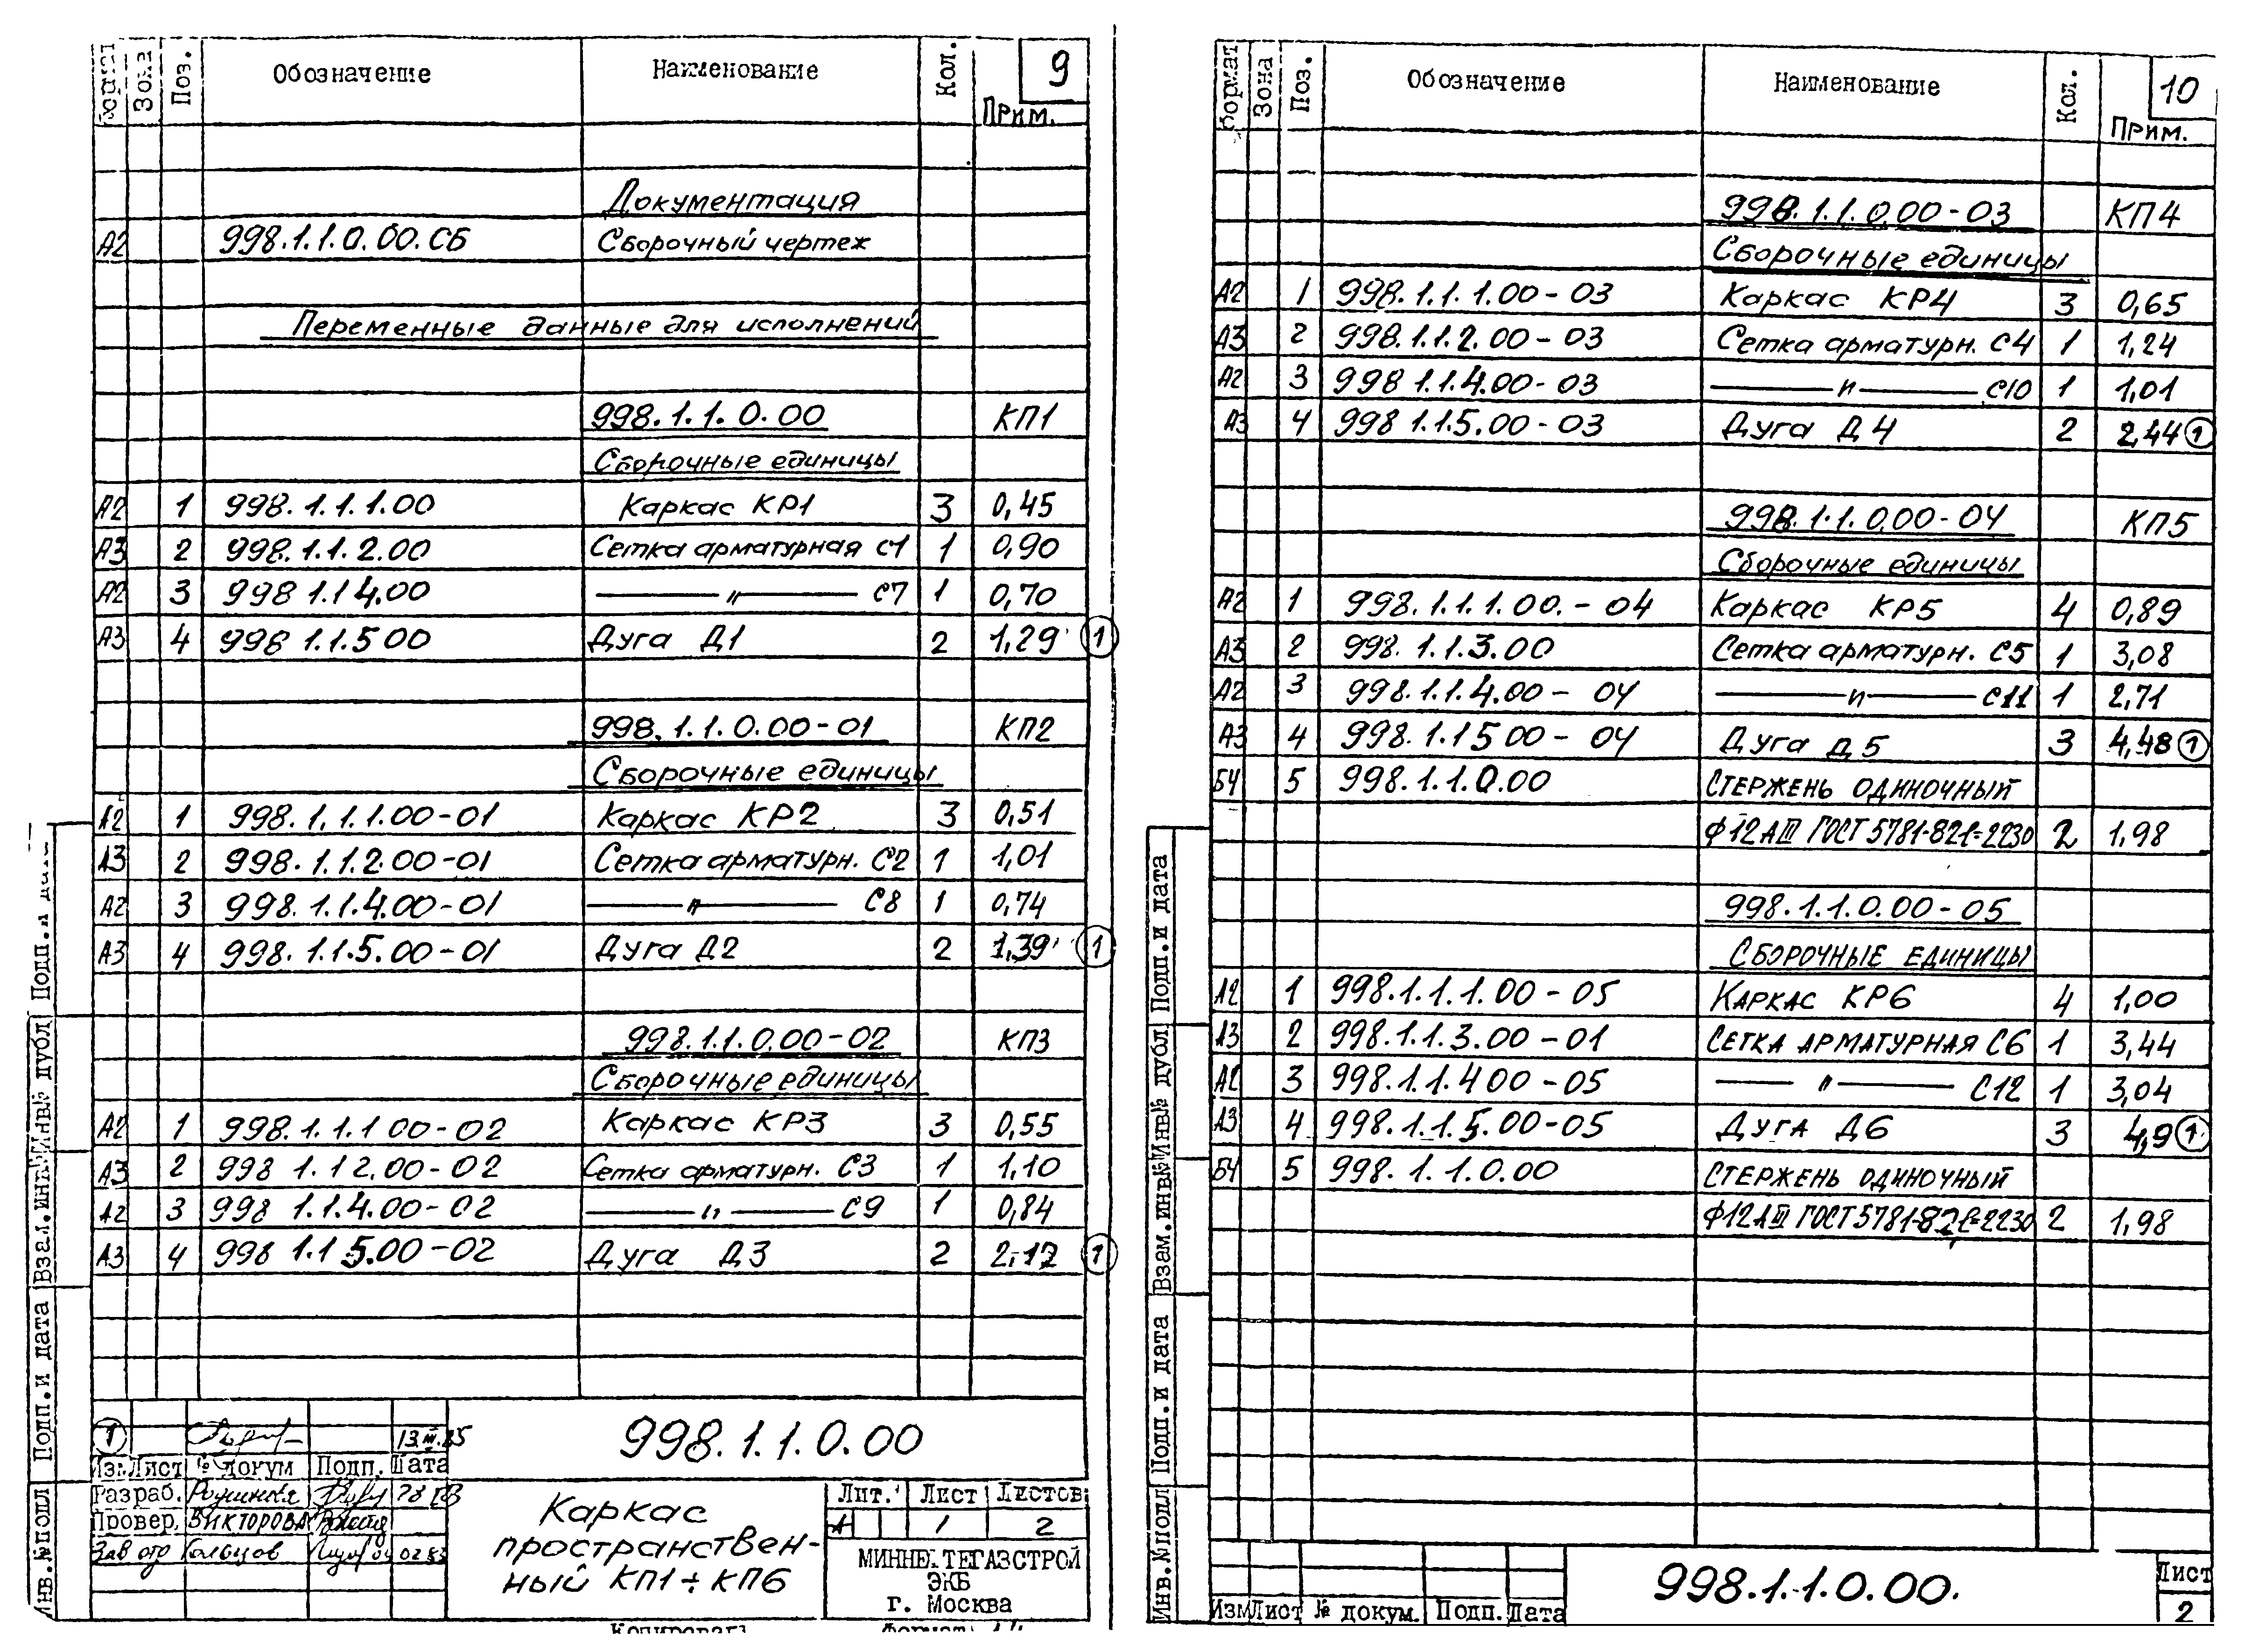 Формат Зона Поз. Обозначение Наименование Кол. Прим. 9
Документация
А2 998.1.1.0.00.СБ Сборочный чертеж
Переменные данные для исполнений
998.1.1.0.00 КП1
Сборочные единицы
А2 1 998.1.1.1.00 Каркас КР1 3 0,45
А3 2 998.1.1.2.00 Сетка арматурная С1 1 0,90
А2 3 998 1.1 4.00 —— " —— С7 1 0,70
А3 4 998 1.1.5 00 Дуга Д1 2 1,29 ①
998.1.1.0.00-01 КП2
Сборочные единицы
А2 1 998.1.1.1.00-01 Каркас КР2 3 0,51
А3 2 998.1.1.2.00-01 Сетка арматурн. С2 1 1,01
А2 3 998.1.1.4.00-01 —— " —— С8 1 0,74
А3 4 998.1.1.5.00-01 Дуга Д2 2 1,39 ①
998.1.1.0.00-02 КП3
Сборочные единицы
А2 1 998.1.1.1 00-02 Каркас КР3 3 0,55
А3 2 998 1.1 2.00-02 Сетка арматурн. С3 1 1,10
А2 3 998 1.1.4.00-02 —— " —— С9 1 0,84
А3 4 998 1.1 5.00-02 Дуга Д3 2 2,12 ①
① 13.III.85
998.1.1.0.00
Изм Лист № докум Подп. Дата
Разраб.
Провер. Викторова
Зав отр Гольцов 04 02 83
Каркас
пространствен-
ный КП1÷КП6
Лит. Лист Листов
А 1 2
МИННЕФТЕГАЗСТРОЙ
ЭКБ
г. Москва
Копировал
Формат
Инв.№подл Подп.и дата Взам.инв№ Инв.№ дубл Подп.и дата
Формат Зона Поз. Обозначение Наименование Кол. Прим. 10
998.1.1.0.00-03 КП4
Сборочные единицы
А2 1 998.1.1.1.00-03 Каркас КР4 3 0,65
А3 2 998.1.1.2.00-03 Сетка арматурн. С4 1 1,24
А2 3 998 1.1.4.00-03 —— " —— С10 1 1,01
А3 4 998 1.1.5.00-03 Дуга Д4 2 2,44 ①
998.1.1.0.00-04 КП5
Сборочные единицы
А2 1 998.1.1.1.00.-04 Каркас КР5 4 0,89
А3 2 998.1.1.3.00 Сетка арматурн. С5 1 3,08
А2 3 998.1.1.4.00-04 —— " —— С11 1 2,71
А3 4 998.1.1 5 00-04 Дуга Д5 3 4,48 ①
БЧ 5 998.1.1.0.00 Стержень одиночный
Ф12АIII ГОСТ 5781-82 ℓ=2230 2 1,98
998.1.1.0.00-05
Сборочные единицы
А2 1 998.1.1.1.00-05 Каркас КР6 4 1,00
А3 2 998.1.1.3.00-01 Сетка арматурная С6 1 3,44
А2 3 998.1.1.4 00-05 —— " —— С12 1 3,04
А3 4 998.1.1.5.00-05 Дуга Д6 3 4,9 ①
БЧ 5 998.1.1.0.00 Стержень одиночный
Ф12АIII ГОСТ 5781-82 ℓ=2230 2 1,98
Изм Лист № докум. Подп. Дата
998.1.1.0.00.
Лист
2
Инв.№подл Подп.и дата Взам.инв№ Инв.№ дубл Подп.и дата